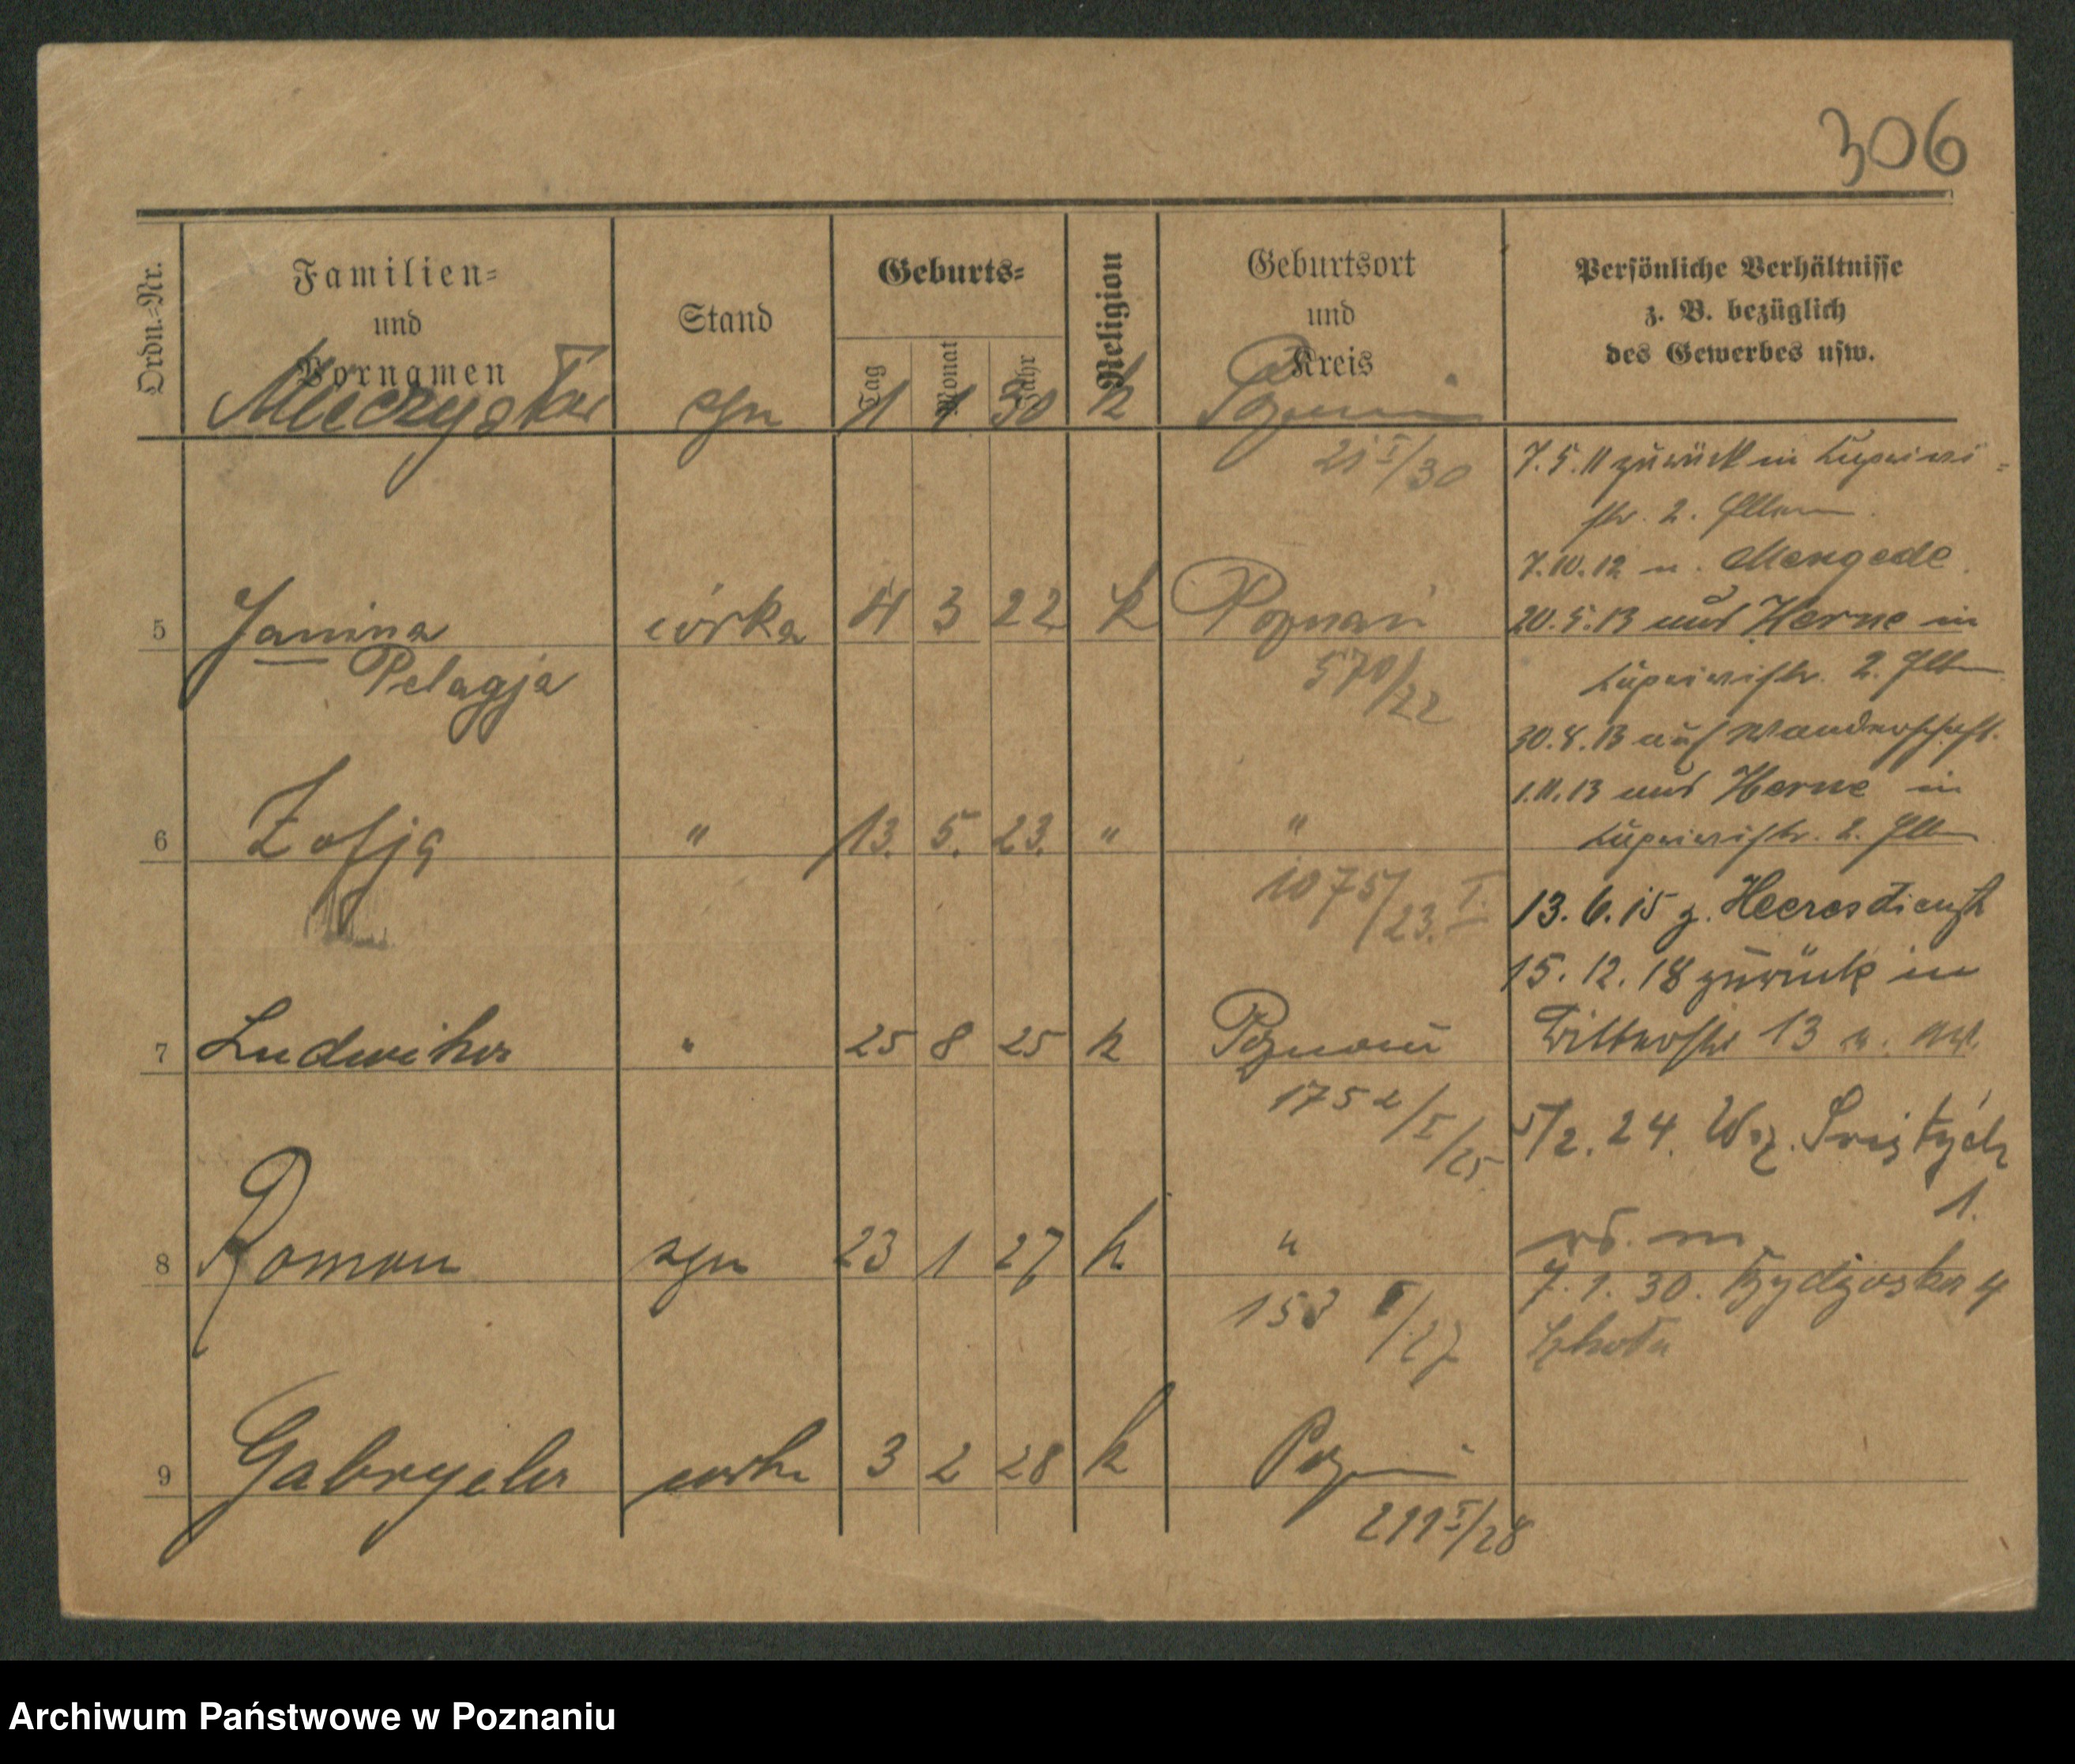 306
Ordn.-Nr.
Familien-
und
Vornamen
Stand
Geburts-
Tag
Monat
Jahr
Religion
Geburtsort
und
Kreis
Persönliche Verhältnisse
z. B. bezüglich
des Gewerbes usw.
Mieczysław syn 1 1 30 k Poznań
21 I/30
7.5.11 zurück in
str. 2. Eltern.
7.10.12 n. Mengede.
5 Janina córka 4 3 22 k Poznań
Pelagja
570/22
20.5.13 aus Herne in
str. 2. Elt
30.8.13 auf Wanderschaft.
1.11.13 aus Herne in
str. 2. Elt
6 Zofja " 13. 5. 23. " "
1075/23. I.
13.6.15 z. Heeresdienst
15.12.18 zurück in
7 Ludwika " 25 8 25 k Poznań
1752/I/25
13
5/2. 24. Wz. Świętych
1.
8 Roman syn 23 1 27 k "
153 I/27
7.1.30. Bydgoska 4
Szkoła
9 Gabryela corka 3 2 28 k Poznań
211 I/28
Archiwum Państwowe w Poznaniu